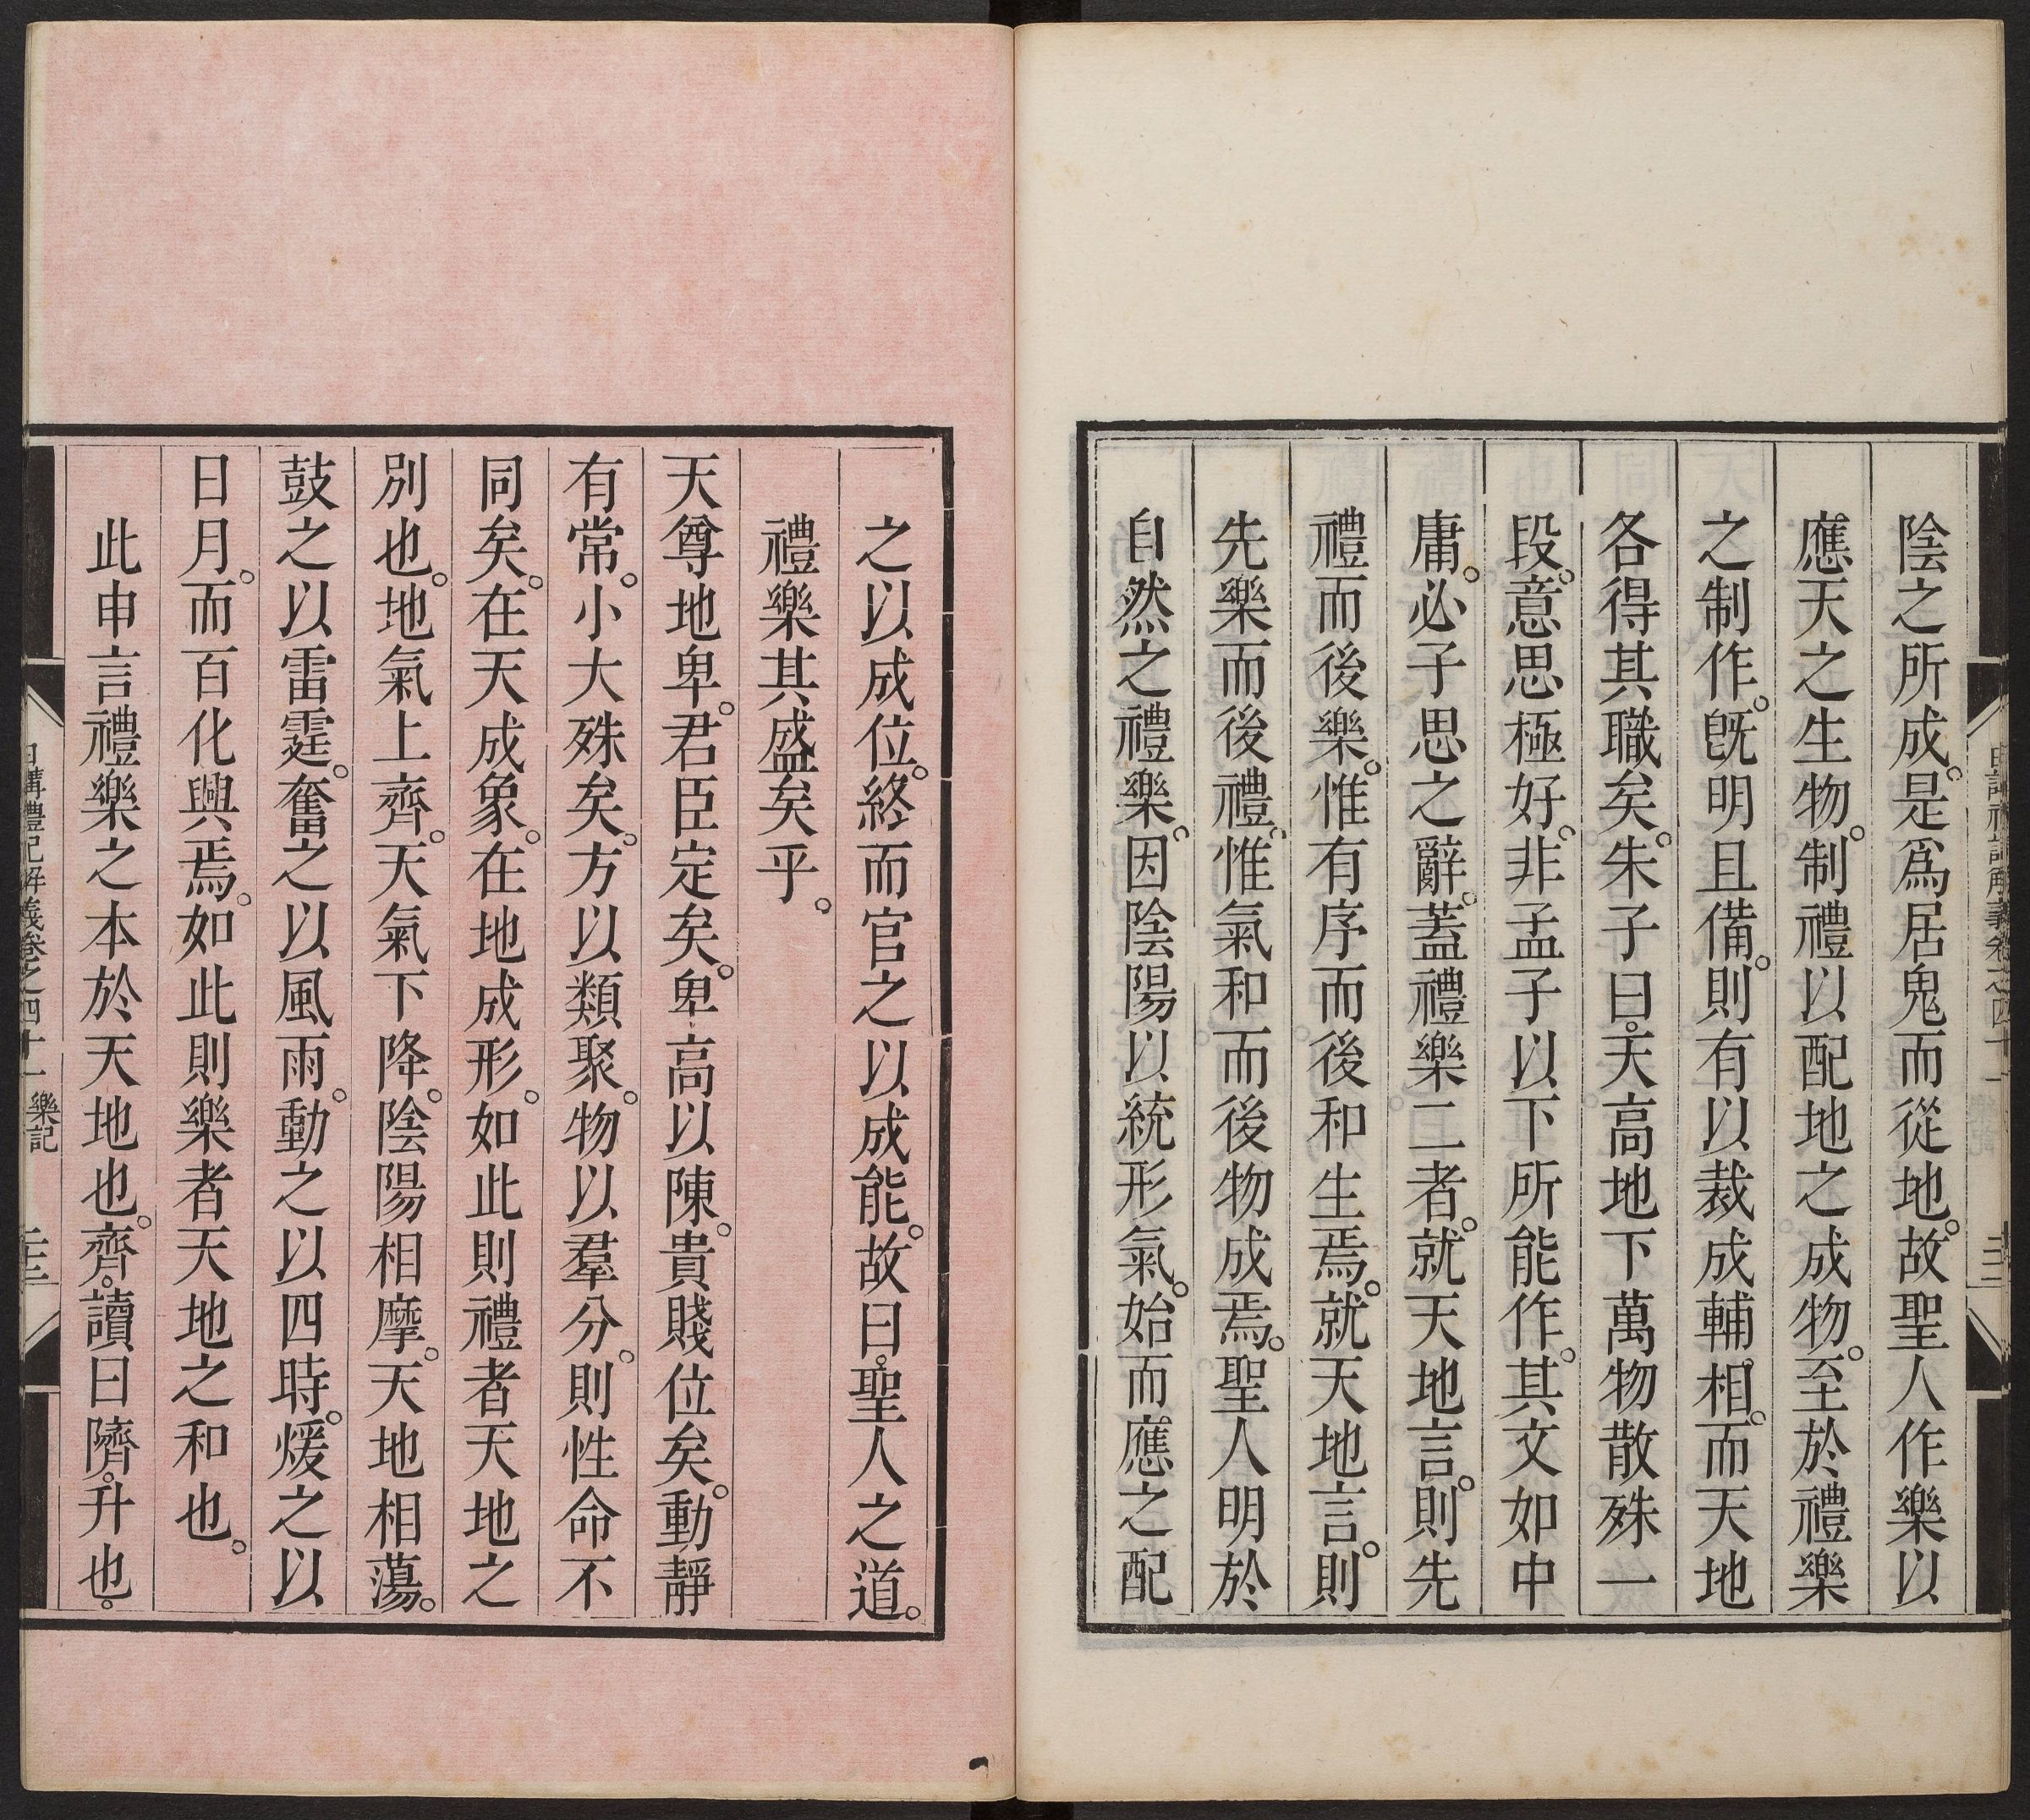 陰之所成。是爲居鬼而從地。故聖人作樂以
應天之生物。制禮以配地之成物。至於禮樂
之制作。旣明且備。則有以裁成輔相。而天地
各得其職矣。朱子曰。天高地下萬物散殊一
段。意思極好。非孟子以下所能作。其文如中
庸。必子思之辭。蓋禮樂二者。就天地言。則先
禮而後樂。惟有序而後和生焉。就天地言。則
先樂而後禮。惟氣和而後物成焉。聖人明於
自然之禮樂。因陰陽以統形氣。始而應之配
之以成位。終而官之以成能。故曰。聖人之道。
禮樂其盛矣乎。
天尊地卑。君臣定矣。卑高以陳。貴賤位矣。動靜
有常。小大殊矣。方以類聚。物以羣分。則性命不
同矣。在天成象。在地成形。如此則禮者天地之
別也。地氣上齊。天氣下降。陰陽相摩。天地相蕩。
鼓之以雷霆。奮之以風雨。動之以四時。煖之以
日月。而百化興焉。如此則樂者天地之和也。
此申言禮樂之本於天地也。齊。讀曰隮。升也。
日講禮記解義卷之四十一 樂記 二十三